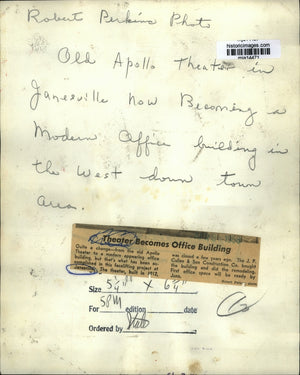 Robert Perkins Photo
historicimages.com
mja14471
Old Apollo Theater in
Janesville Now Becoming a
Modern Office building in
the West down town
area.
Theater Becomes Office Building
Quite a change—from the old Apollo
Theater to a modern appearing office
building, but that's what has been ac-
complished in the facelifting project at
Janesville. The theater, built in 1912,
was closed a few years ago. The J. P.
Cullen & Son Construction Co. bought
the building and did the remodeling.
First office space will be ready by
June.
Size 5 1/4" x 6 3/4"
For 5PM edition date
Ordered by